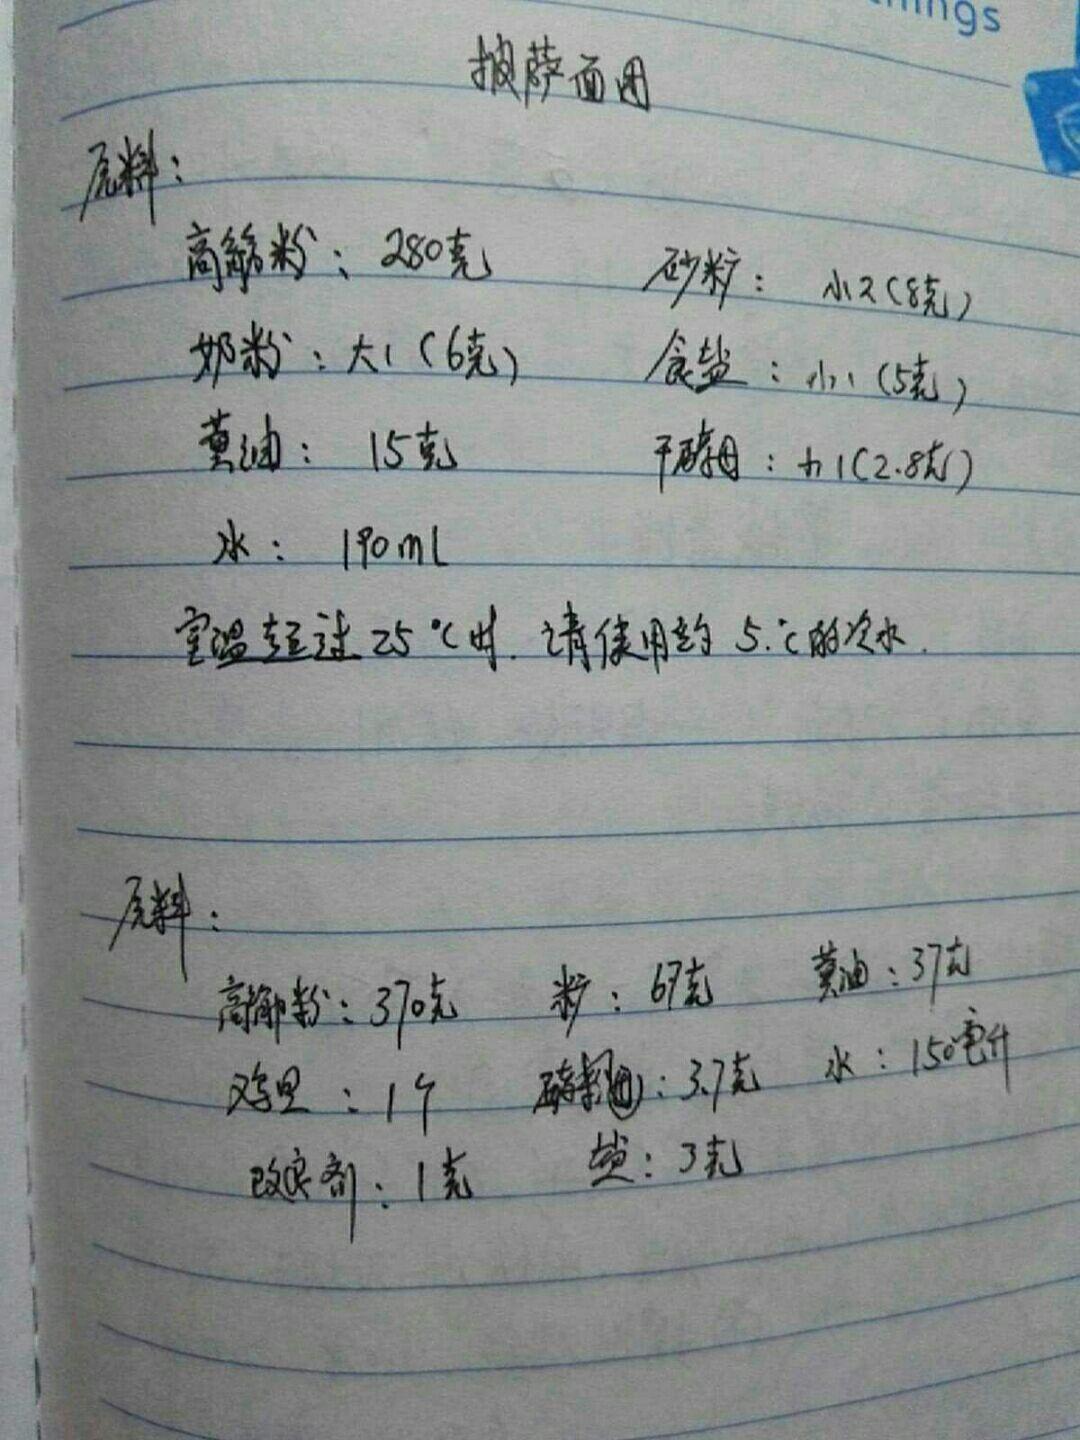 things
披萨面团
原料：
高筋粉：280克 砂粒：小2（8克）
奶粉：大1（6克） 食盐：小1（5克）
黄油：15克 干酵母：小1（2.8克）
水：190ml
室温超过25℃时.请使用约5℃的冷水.
原料：
高筋粉：370克 糖：67克 黄油：37克
鸡蛋：1个 酵母：3.7克 水：150毫升
改良剂：1克 盐：3克